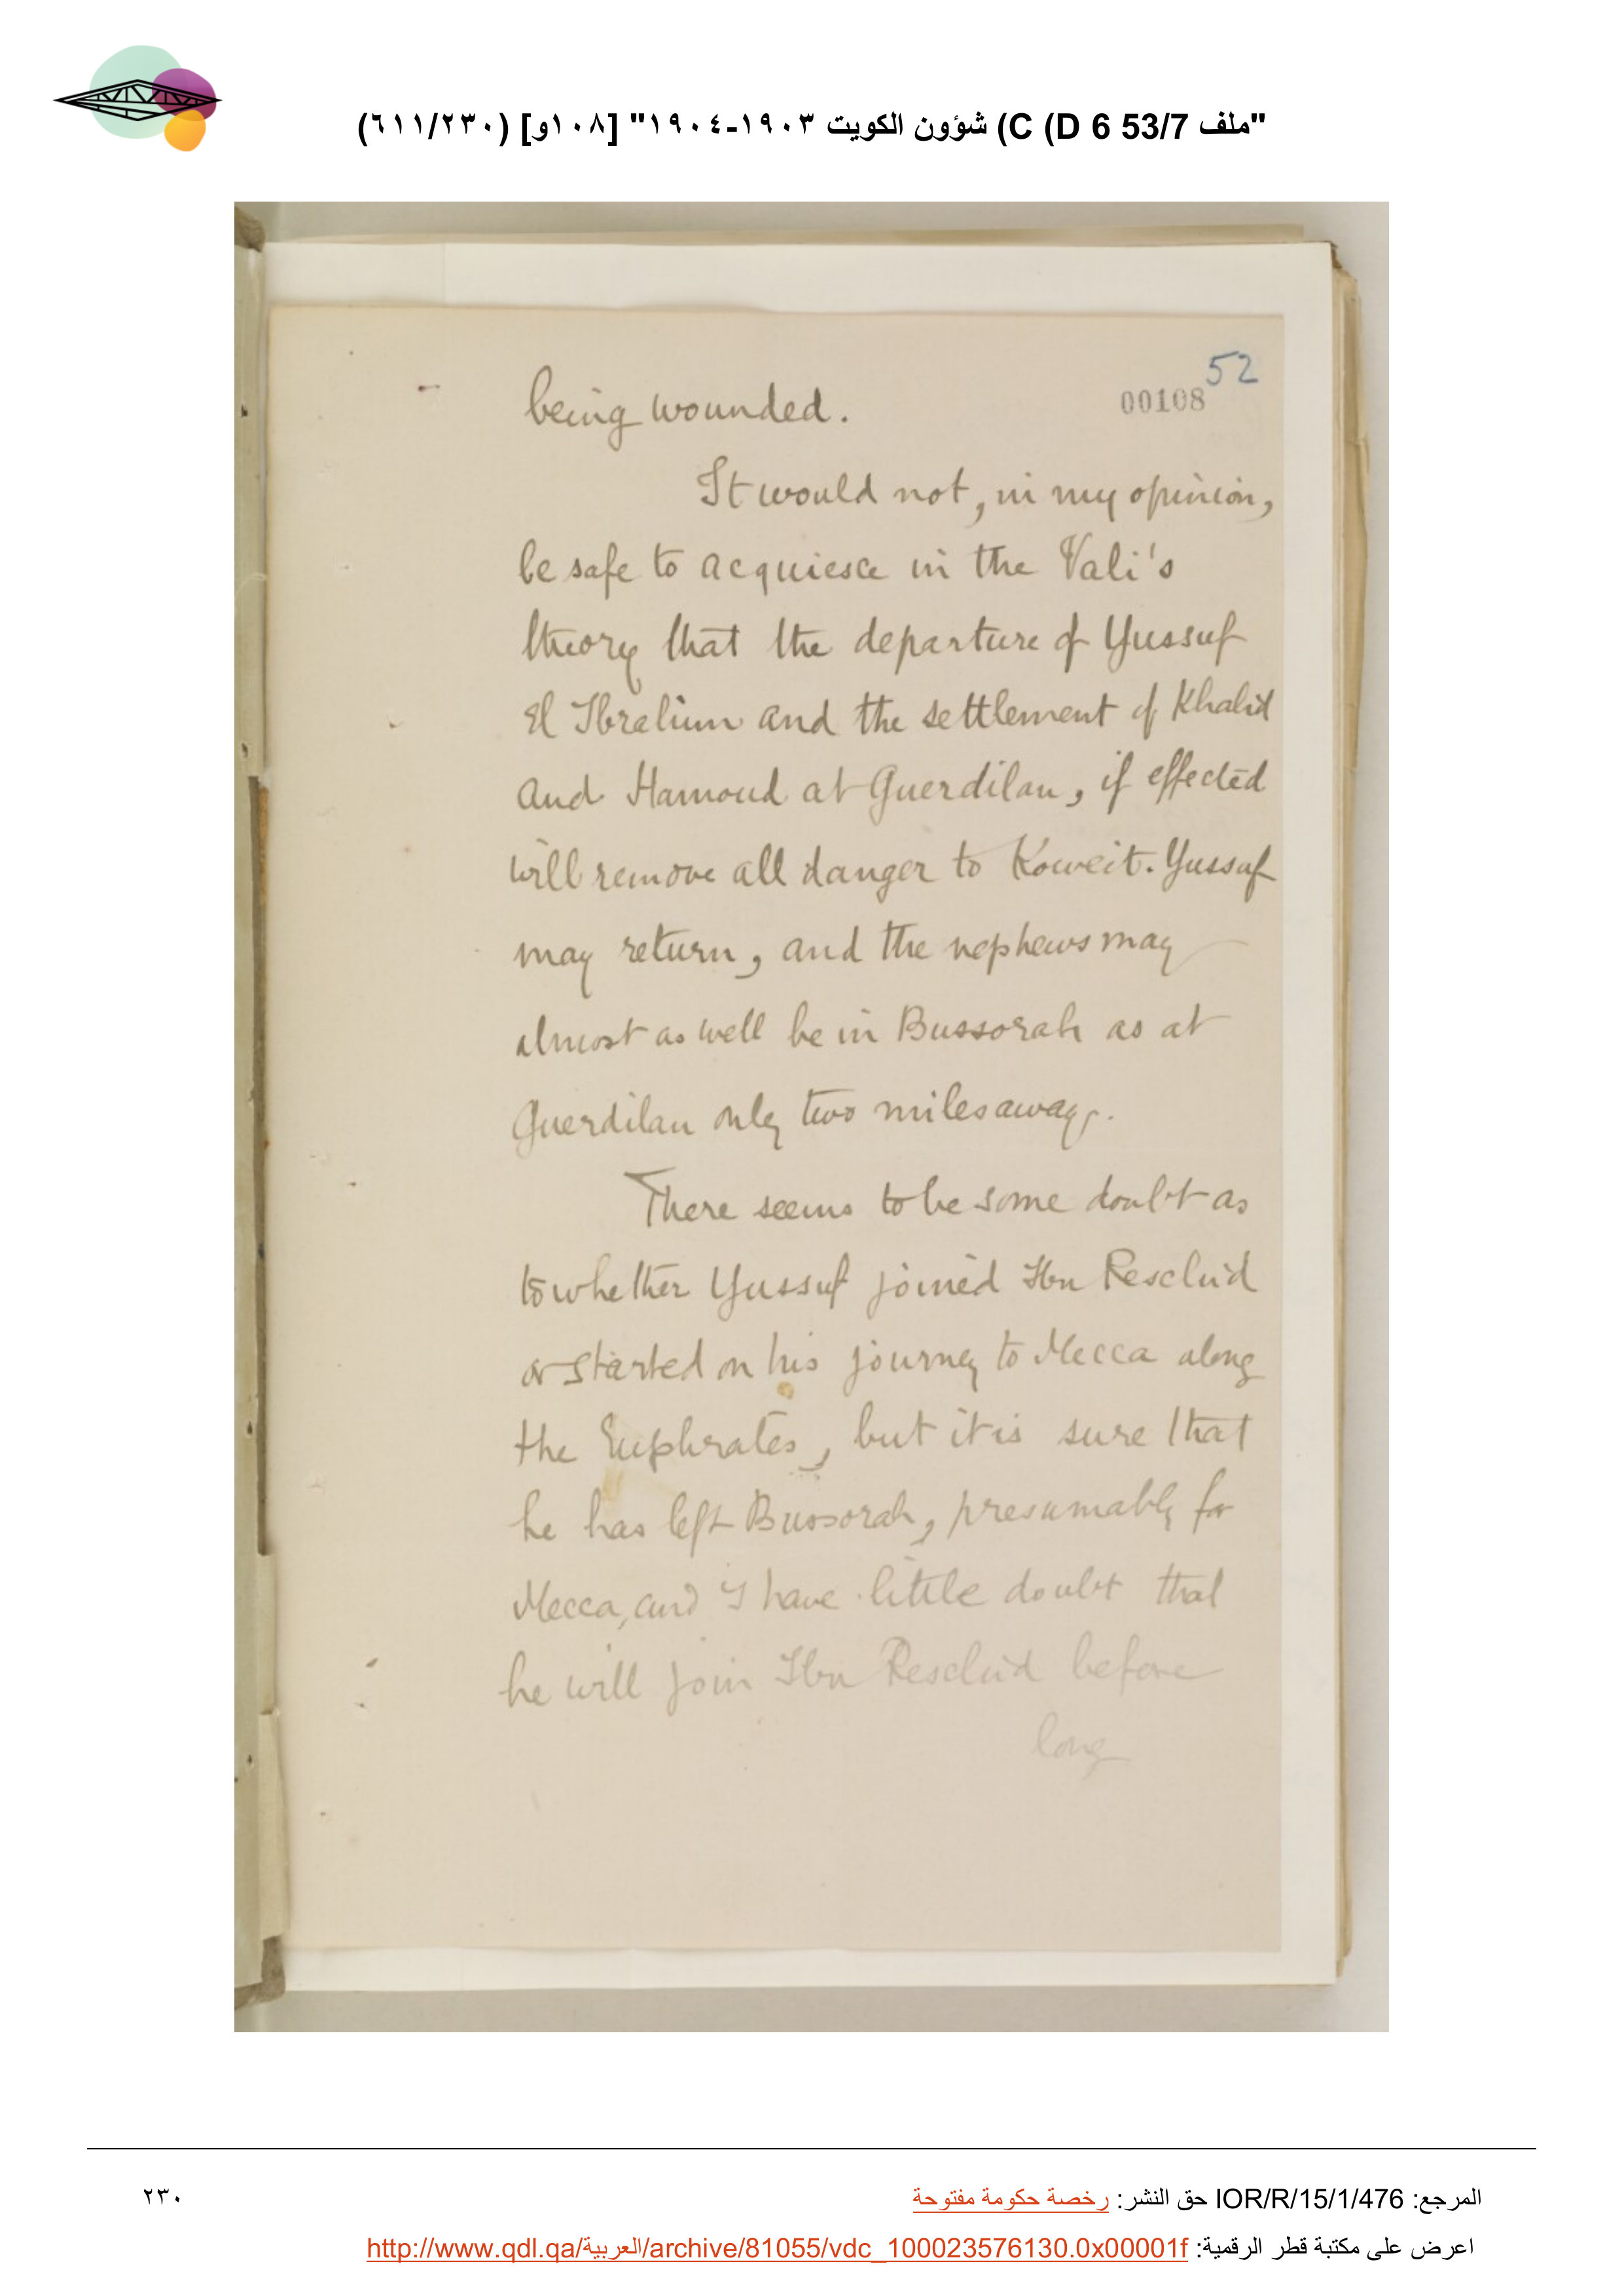 "ملف C (D 6 53/7) شؤون الكويت ١٩٠٣-١٩٠٤" [١٠٨و] (٦١١/٢٣٠)
52
00108
being wounded.
It would not, in my opinion,
be safe to acquiesce in the Vali's
theory that the departure of Yussuf
El Ibrahim and the settlement of Khalid
and Hamoud at Guerdilan, if effected
will remove all danger to Koweit. Yussuf
may return, and the nephews may
almost as well be in Bussorah as at
Guerdilan only two miles away.
There seems to be some doubt as
to whether Yussuf joined Ibn Reschid
or started on his journey to Mecca along
the Euphrates, but it is sure that
he has left Bussorah, presumably for
Mecca, and I have little doubt that
he will join Ibn Reschid before
long
المرجع: IOR/R/15/1/476 حق النشر: رخصة حكومة مفتوحة
٢٣٠
اعرض على مكتبة قطر الرقمية: http://www.qdl.qa/العربية/archive/81055/vdc_100023576130.0x00001f